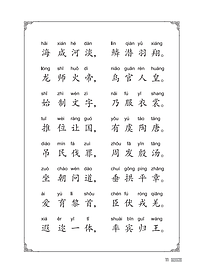 hǎi xián hé dàn lín qián yǔ xiáng
海咸河淡，鳞潜羽翔。
lóng shī huǒ dì niǎo guān rén huáng
龙师火帝，鸟官人皇。
shǐ zhì wén zì nǎi fú yī cháng
始制文字，乃服衣裳。
tuī wèi ràng guó yǒu yú táo táng
推位让国，有虞陶唐。
diào mín fá zuì zhōu fā yīn tāng
吊民伐罪，周发殷汤。
zuò cháo wèn dào chuí gǒng píng zhāng
坐朝问道，垂拱平章。
ài yù lí shǒu chén fú róng qiāng
爱育黎首，臣伏戎羌。
xiá ěr yì tǐ shuài bīn guī wáng
遐迩一体，率宾归王。